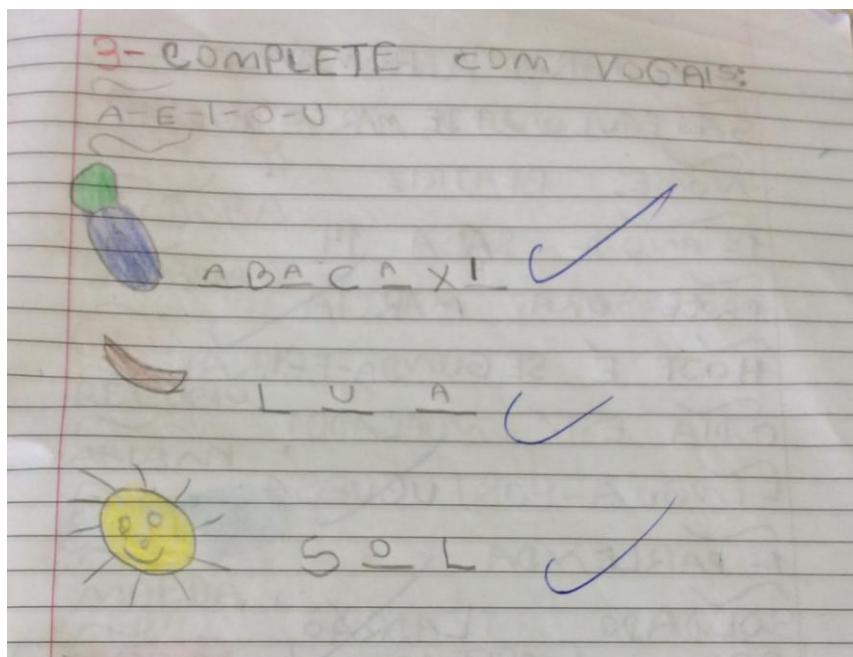 3- COMPLETE COM VOGAIS:
A-E-I-O-U
ABACAXI
LUA
SOL